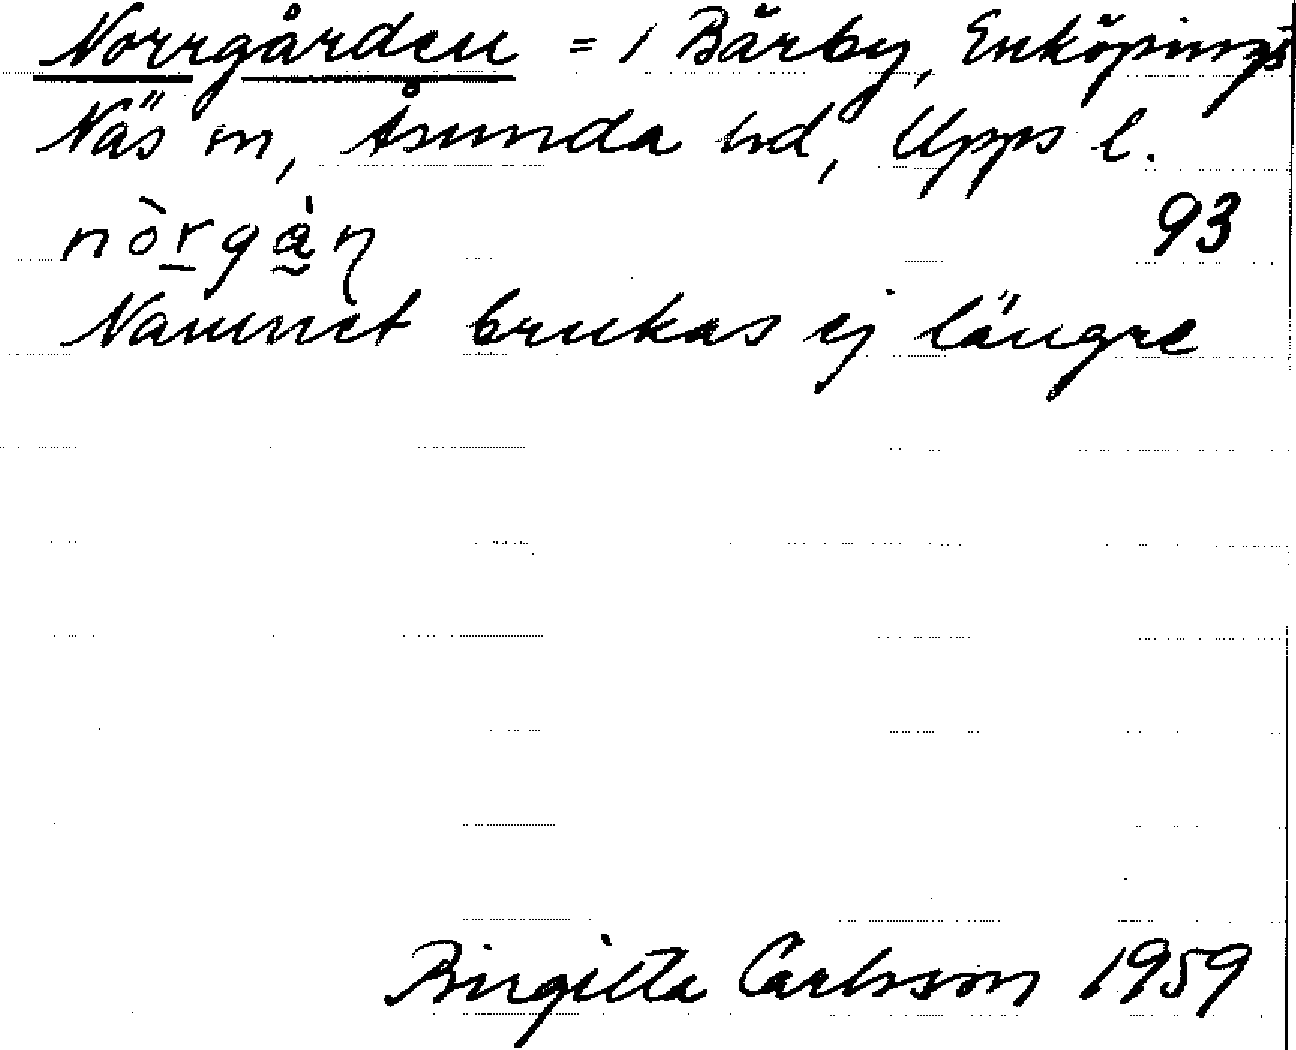 Norrgården = 1 Bärby, Enköpings
Näs sn, Åsunda hd, Upps l.
nòrgån 93
Namnet brukas ej längre
Birgitta Carlsson 1959